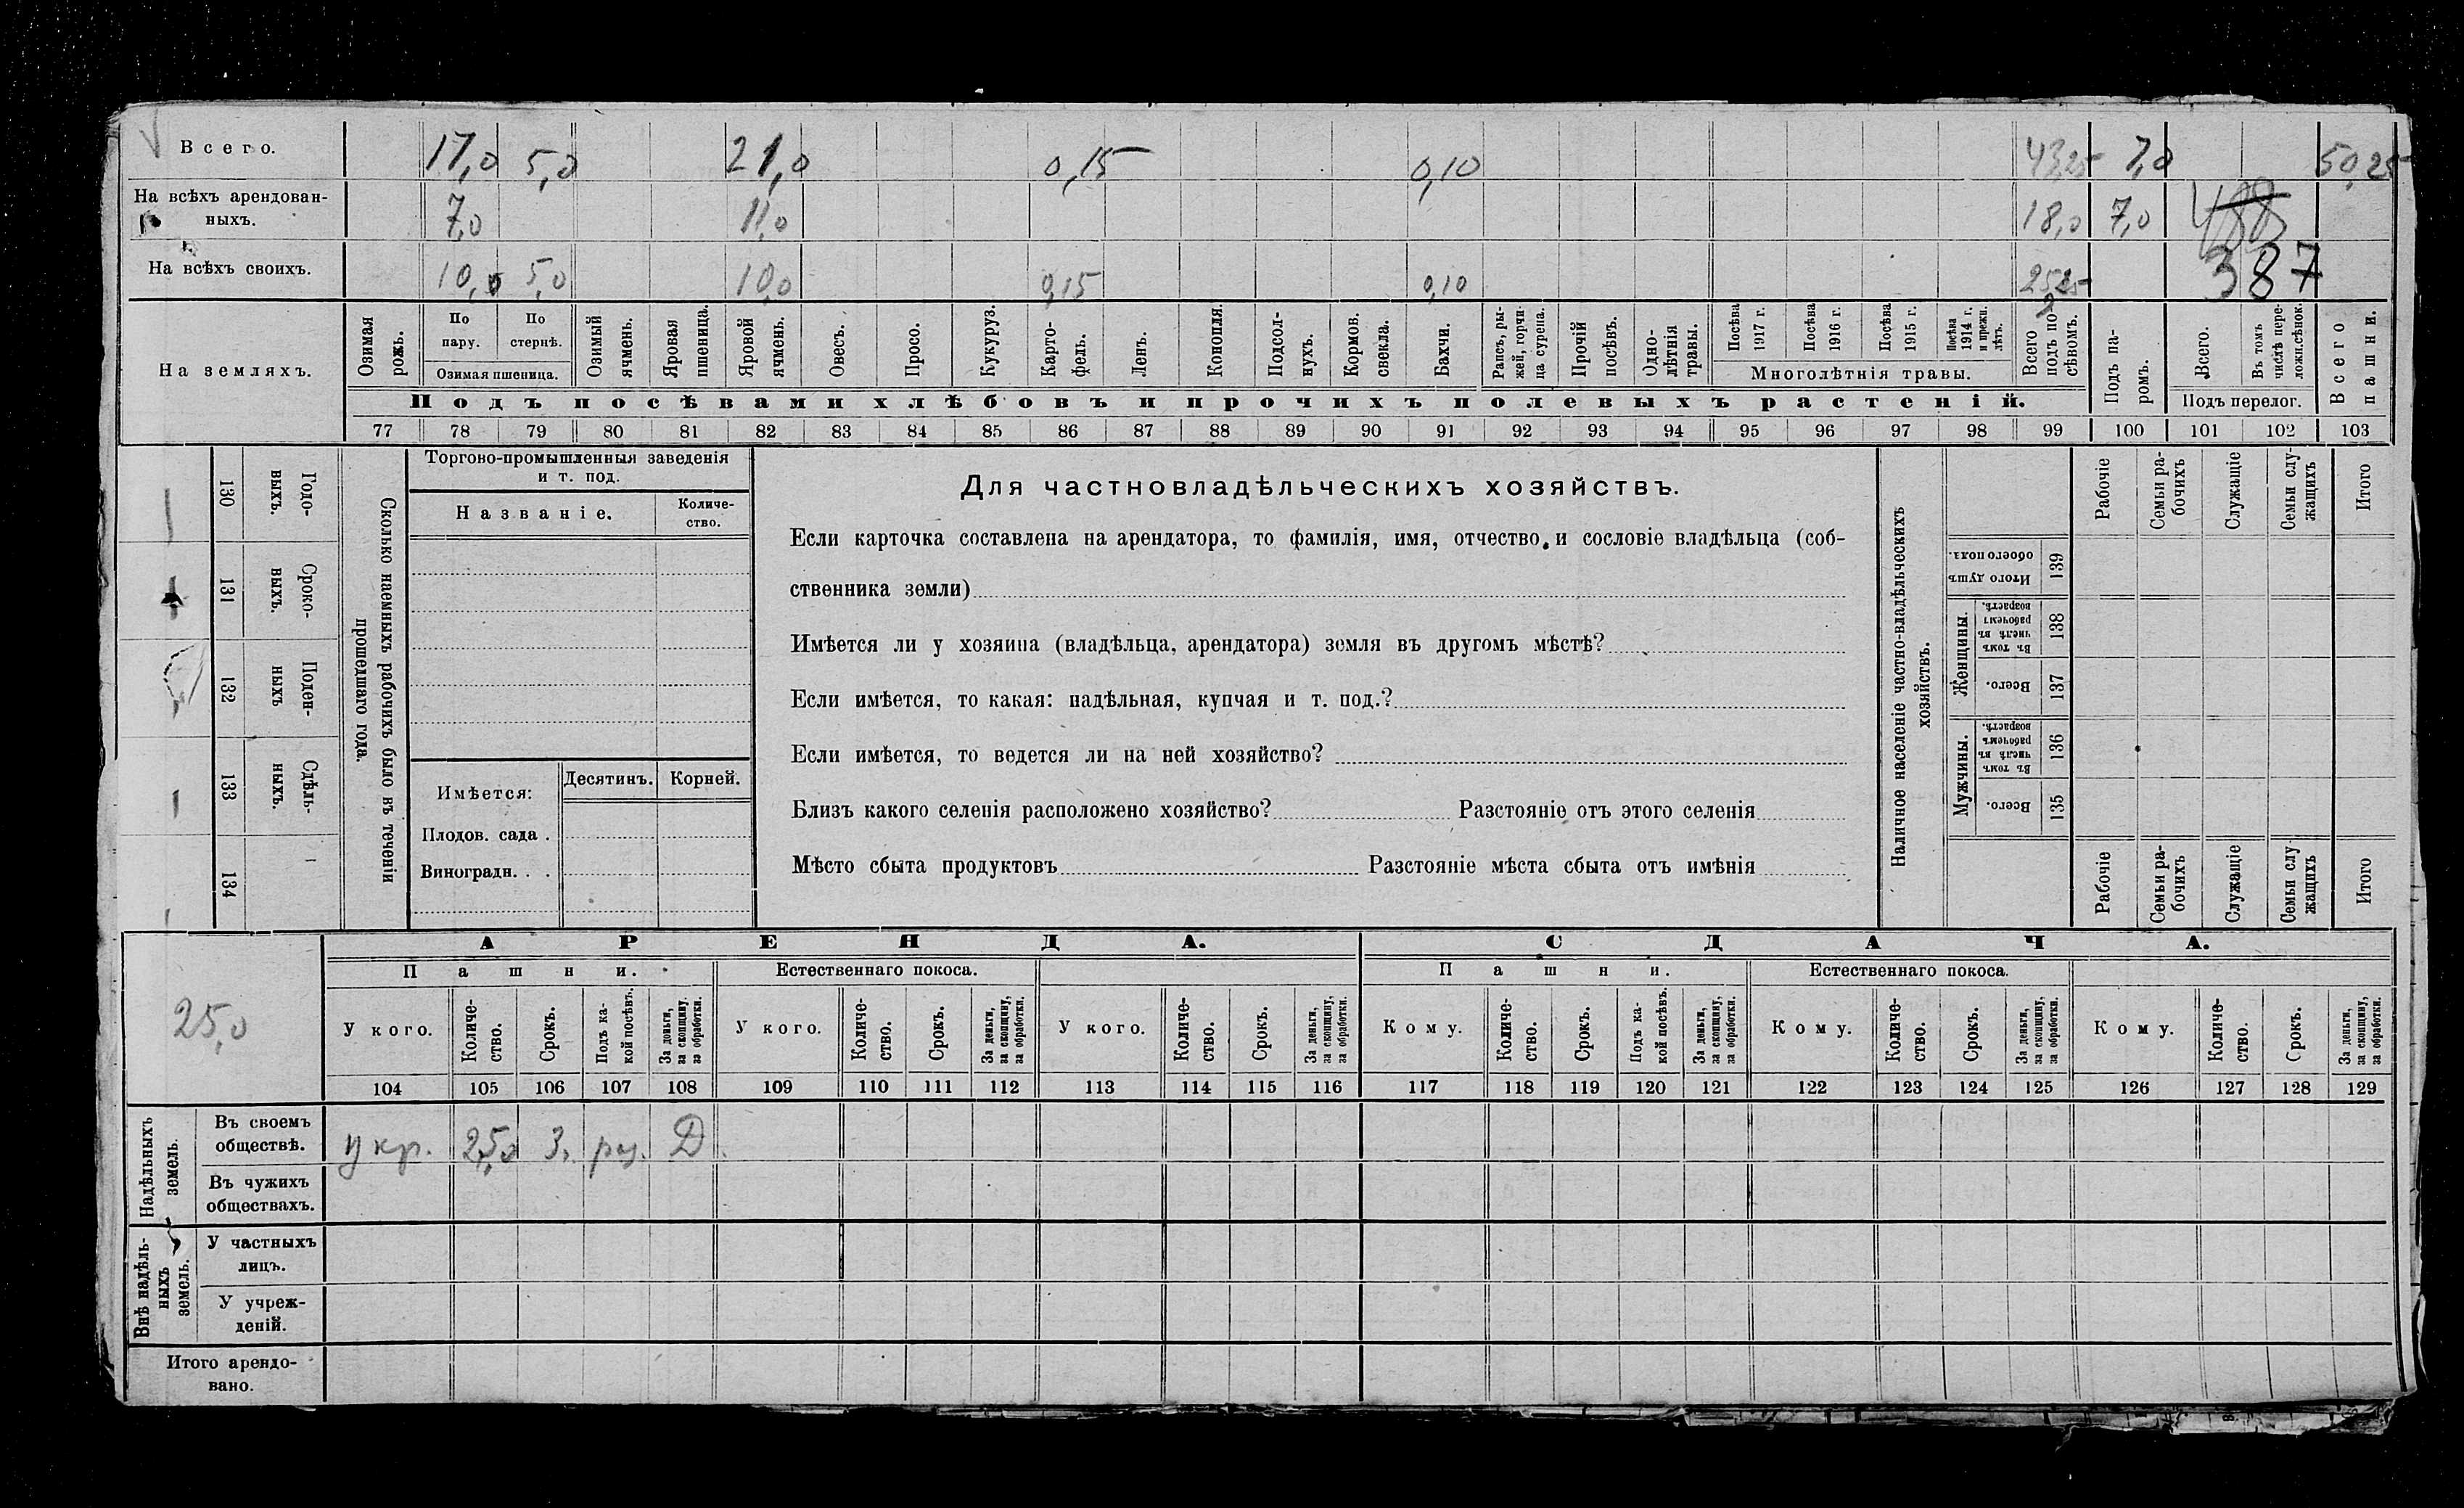 Всего. 17,0 5,0 21,0 0,15 0,10 43,25 7,0 50,25
На всѣхъ арендован-
ныхъ. 7,0 11,0 18,0 7,0 488
На всѣхъ своихъ. 10,0 5,0 10,0 0,15 0,10 25,25 387
На земляхъ.
Озимая рожь.
По пару.
По стернѣ.
Озимая пшеница.
Озимый ячмень.
Яровая пшеница.
Яровой ячмень.
Овесъ.
Просо.
Кукуруз.
Карто-
фель.
Ленъ.
Конопля.
Подсол-
нухъ.
Кормов. свекла.
Бахчи.
Рапсъ, ры-
жей, горчи-
ца сурепа.
Прочій посѣвъ.
Одно-
лѣтнія травы.
Посѣва 1917 г.
Посѣва 1916 г.
Посѣва 1915 г.
Посѣва 1914 г. и прежн. лѣтъ.
Многолѣтнія травы.
Всего подъ по-
сѣвомъ.
Подъ посѣвами хлѣбовъ и прочихъ полевыхъ растеній.
Подъ па-
ромъ.
Всего.
Въ томъ числѣ пере-
ложн.сѣнок.
Подъ перелог.
Всего пашни.
77 78 79 80 81 82 83 84 85 86 87 88 89 90 91 92 93 94 95 96 97 98 99 100 101 102 103
130 Годо-
ныхъ.
131 Сроко-
выхъ.
132 Поден-
ныхъ
133 Сдѣль-
ныхъ.
134
Сколько наемныхъ рабочихъ было въ теченіи
прошедшаго года.
Торгово-промышленныя заведенія
и т. под.
Названіе.
Количе-
ство.
Имѣется: Десятинъ. Корней.
Плодов. сада .
Виноградн. . .
Для частновладѣльческихъ хозяйствъ.
Если карточка составлена на арендатора, то фамилія, имя, отчество и сословіе владѣльца (соб-
ственника земли)
Имѣется ли у хозяина (владѣльца, арендатора) земля въ другомъ мѣстѣ?
Если имѣется, то какая: надѣльная, купчая и т. под.?
Если имѣется, то ведется ли на ней хозяйство?
Близъ какого селенія расположено хозяйство? Разстояніе отъ этого селенія
Мѣсто сбыта продуктовъ Разстояніе мѣста сбыта отъ имѣнія
Наличное населеніе частно-владѣльческихъ
хозяйствъ.
Рабочіе
Семьи ра-
бочихъ
Служащіе
Семьи слу-
жащихъ
Итого
Итого душъ обоего пола. 139
Женщины.
Въ томъ числѣ въ рабочемъ возрастѣ. 138
Всего. 137
Мужчины.
Въ томъ числѣ въ рабочемъ возрастѣ. 136
Всего. 135
Рабочіе
Семьи ра-
бочихъ
Служащіе
Семьи слу
жащихъ
Итого
25,0
АРЕНДА. СДАЧА.
Пашни. Естественнаго покоса. Пашни. Естественнаго покоса.
У кого. Количе-
ство. Срокъ. Подъ ка-
кой посѣвъ. За деньги, за скопщину, за обработки.
У кого. Количе-
ство. Срокъ. За деньги, за скопщину, за обработки.
У кого. Количе-
ство. Срокъ. За деньги, за скопщину, за обработки.
Кому. Количе-
ство. Срокъ. Подъ ка-
кой посѣвъ. За деньги, за скопщину, за обработки.
Кому. Количе-
ство. Срокъ. За деньги, за скопщину, за обработки.
Кому. Количе-
ство. Срокъ. За деньги, за скопщину, за обработки.
104 105 106 107 108 109 110 111 112 113 114 115 116 117 118 119 120 121 122 123 124 125 126 127 128 129
Надѣльныхъ земель.
Въ своемъ
обществѣ. у кр. 25,0 3. Д
Въ чужихъ
обществахъ.
Внѣ надѣль-
ныхъ земель.
У частныхъ
лицъ.
У учреж-
деній.
Итого арендо-
вано.